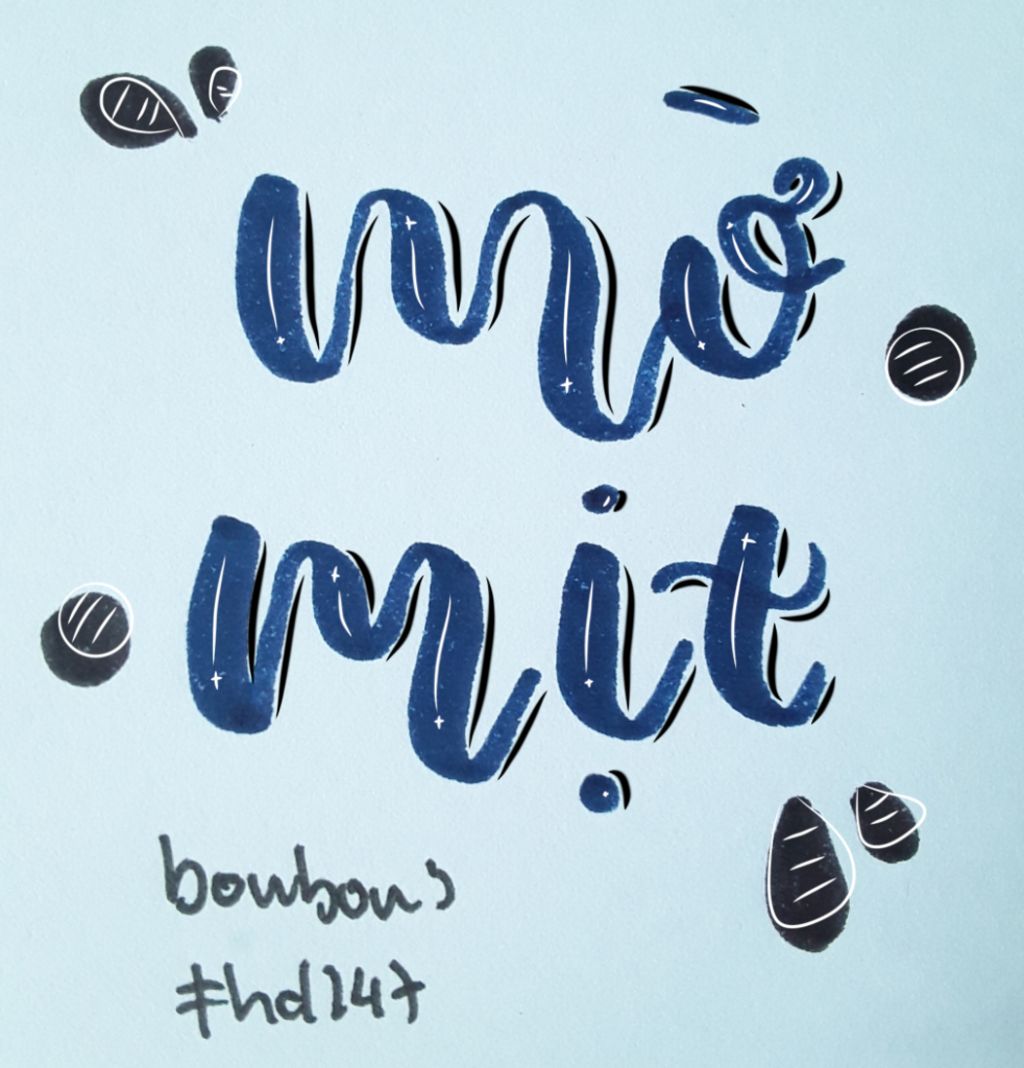 mờ
mịt
bonbons
#hd247